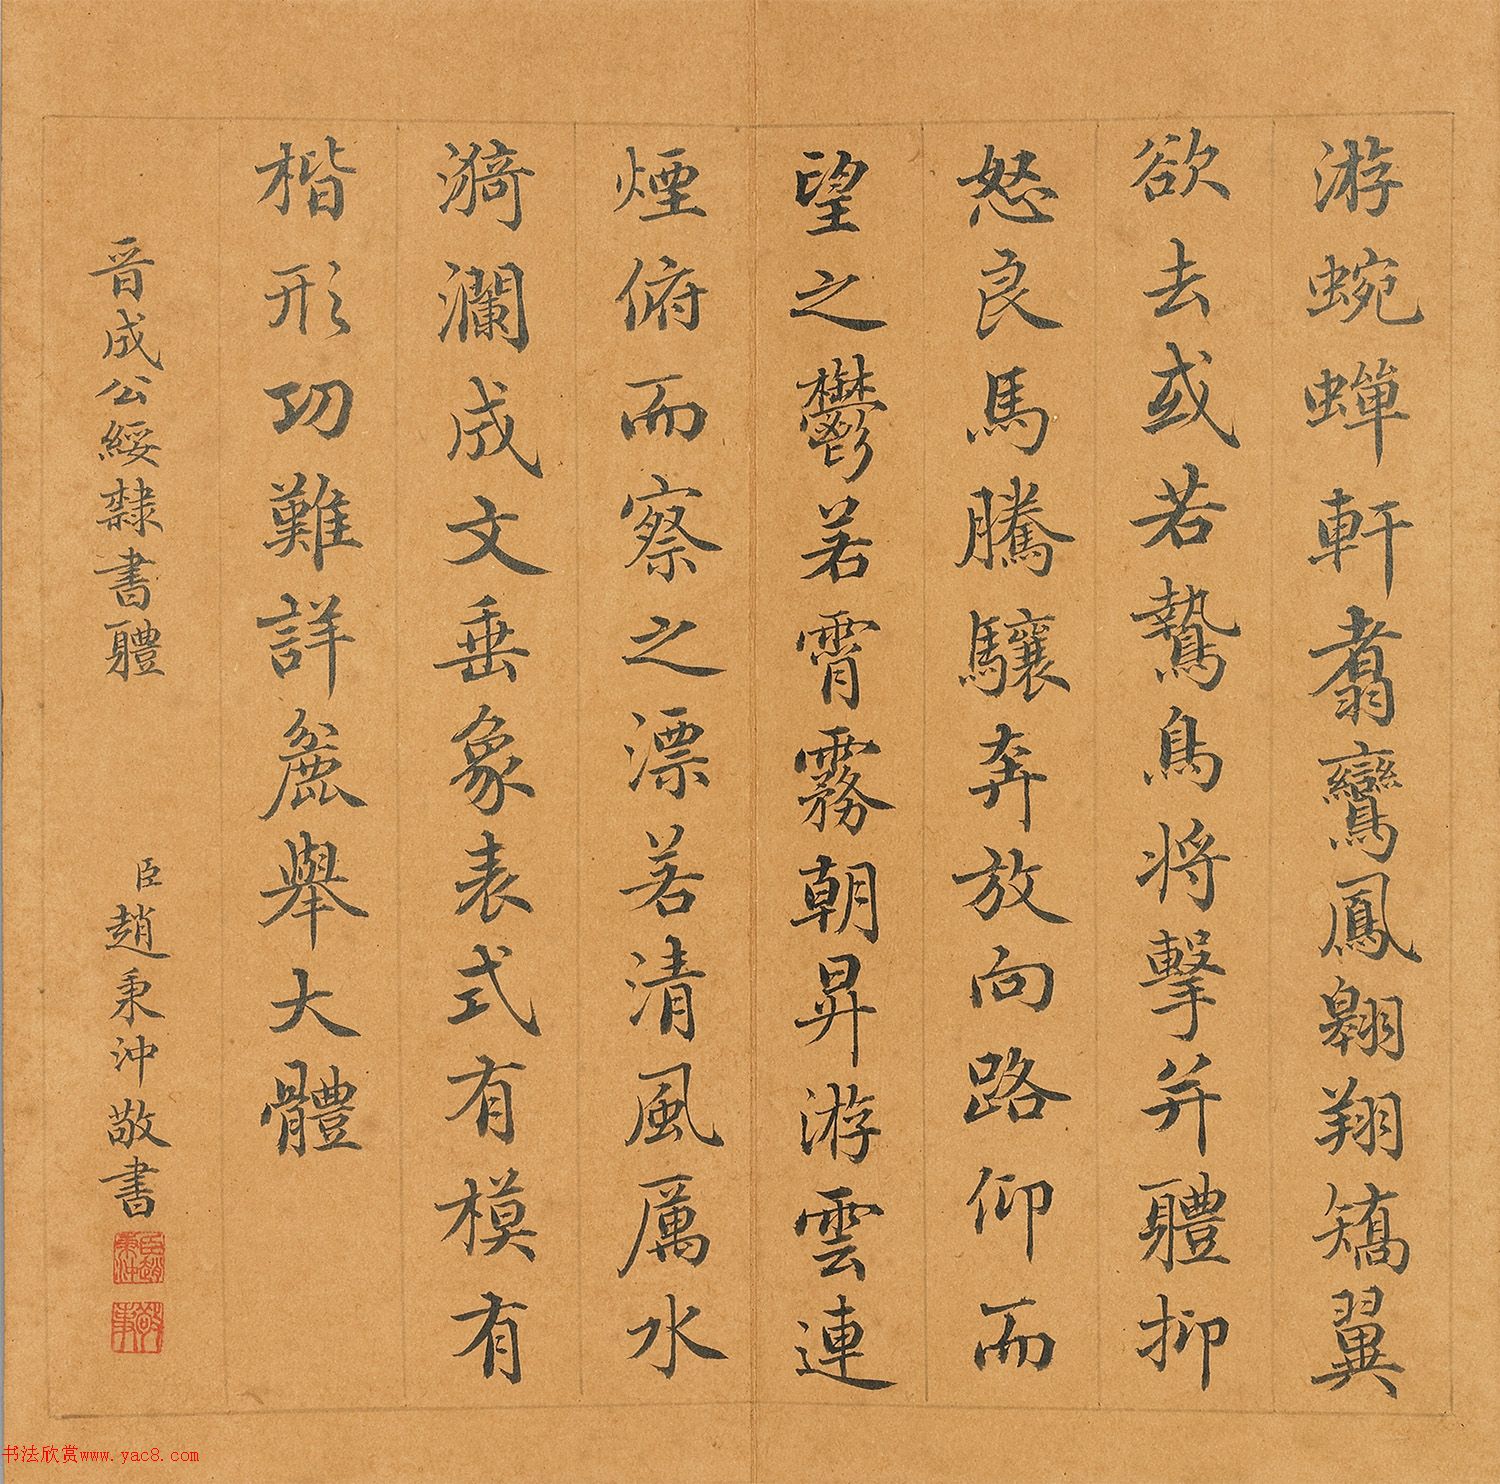 游蜿蟬軒翥鸞鳳翱翔矯翼
欲去或若鷙鳥將擊并軆抑
怒良馬騰驤奔放向路仰而
望之鬱若霄霧朝昇游雲連
煙俯而察之漂若清風厲水
漪瀾成文垂象表式有模有
楷形功難詳粗舉大體
晉成公綏隸書軆
臣趙秉沖敬書
臣趙秉沖
书法欣赏www.yac8.com